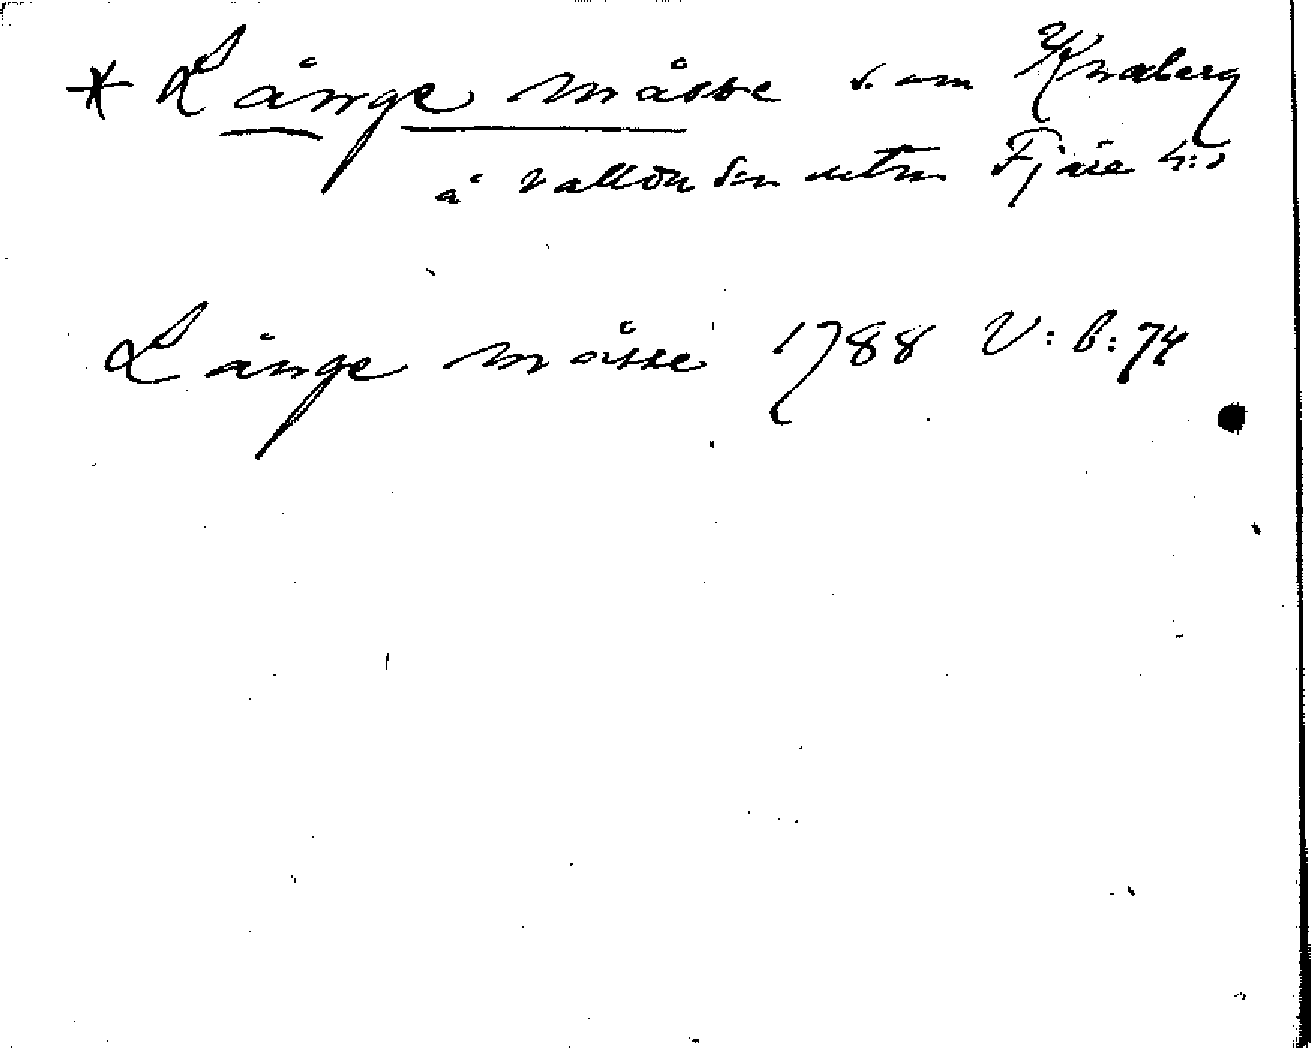 * Långe måsse s. om Knaberg
å Valldu Sn utm Fjäre h:d
Långe måsse 1788 V: b: 74